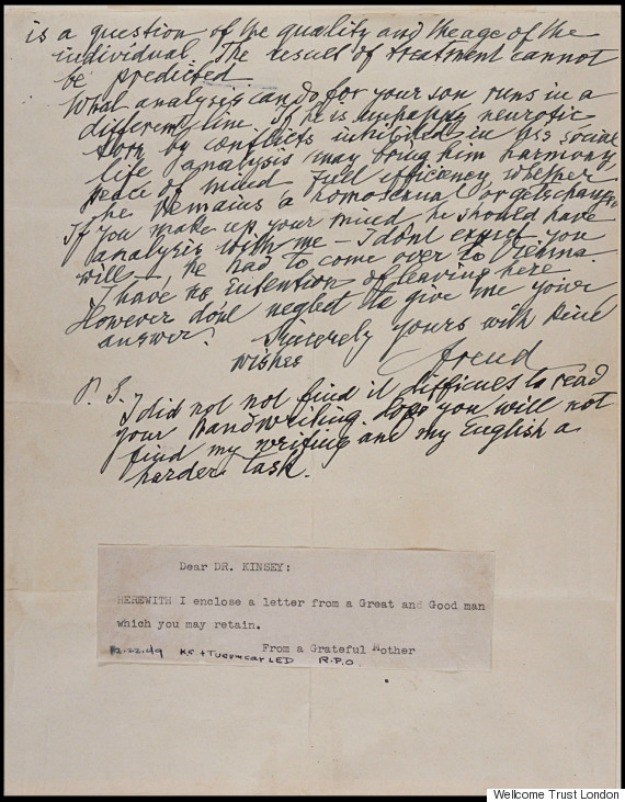 is a question of the quality and the age of the
individual. The result of treatment cannot
be predicted.
What analysis can do for your son runs in a
different line. If he is unhappy, neurotic,
torn by conflicts, inhibited in his social
life, analysis may bring him harmony,
peace of mind, full efficiency, whether
he remains a homosexual or gets changed.
If you make up your mind he should have
analysis with me — I dont expect you
will —, he had to come over to Vienna.
I have no intention of leaving here.
However dont neglect to give me your
answer.
Sincerely yours with kind
wishes
Freud
P. S.
I did not not find it difficult to read
your handwriting. Hope you will not
find my writing and my English a
harder task.
Dear DR. KINSEY:
HEREWITH I enclose a letter from a Great and Good man
which you may retain.
From a Grateful Mother
R.P.O.
Wellcome Trust London